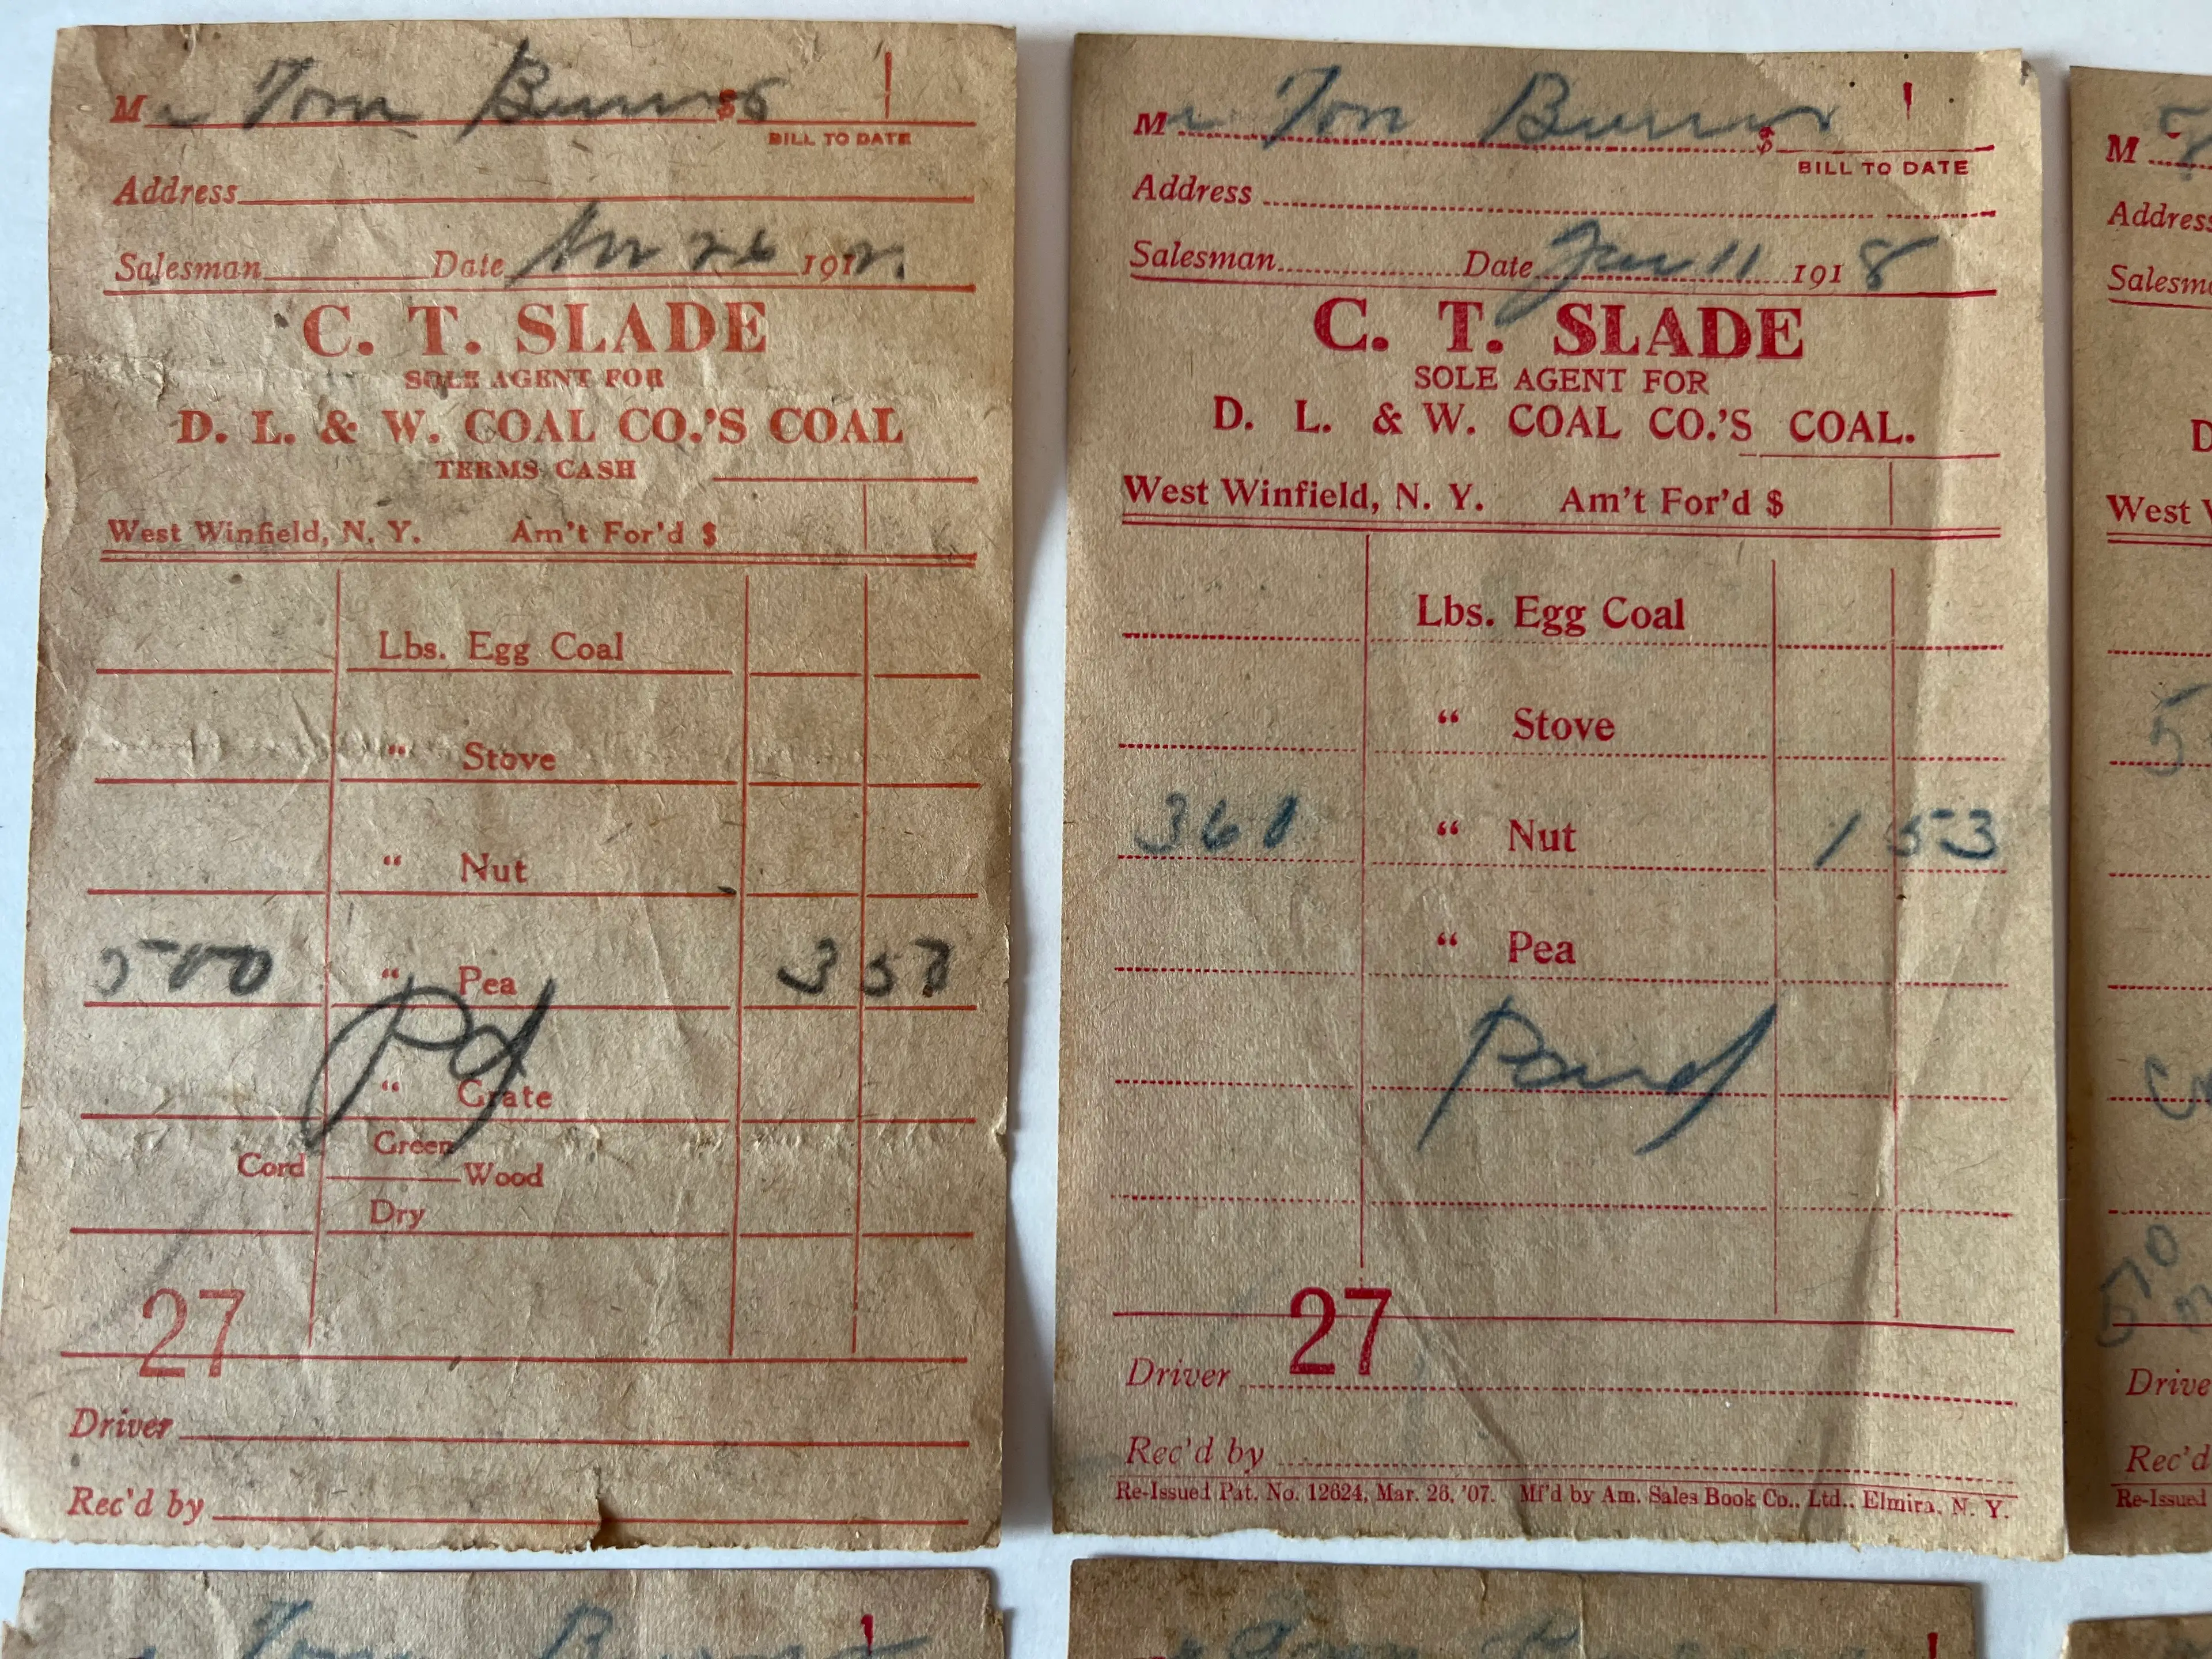 Mr Tom Burns $
BILL TO DATE
Address
Salesman Date 26 191
C. T. SLADE
SOLE AGENT FOR
D. L. & W. COAL CO.'S COAL
TERMS CASH
West Winfield, N. Y. Am't For'd $
Lbs. Egg Coal
" Stove
" Nut
500 " Pea 3
Pd
" Grate
Green
Cord Wood
Dry
27
Driver
Rec'd by
Mr Tom Burns $
BILL TO DATE
Address
Salesman Date Jan 11 1918
C. T. SLADE
SOLE AGENT FOR
D. L. & W. COAL CO.'S COAL.
West Winfield, N. Y. Am't For'd $
Lbs. Egg Coal
" Stove
360 " Nut 1 53
" Pea
Paid
27
Driver
Rec'd by
Re-Issued Pat. No. 12624, Mar. 26, '07. Mf'd by Am. Sales Book Co., Ltd., Elmira, N. Y.
M
Address
Salesm
D
West W
5
Drive
Rec'd
Re-Issued
Tom Burns